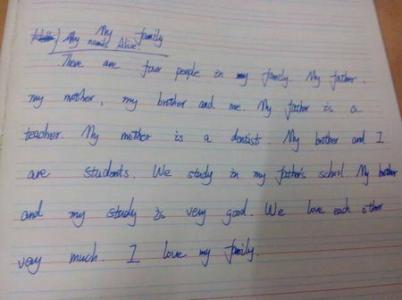 My family
My name's Alice
There are four people in my family. My father.
my mother, my brother and me. My father is a
teacher. My mother is a dentist. My brother and I
are students. We study in my father's school. My brother
and my study is very good. We love each other
very much. I love my family.